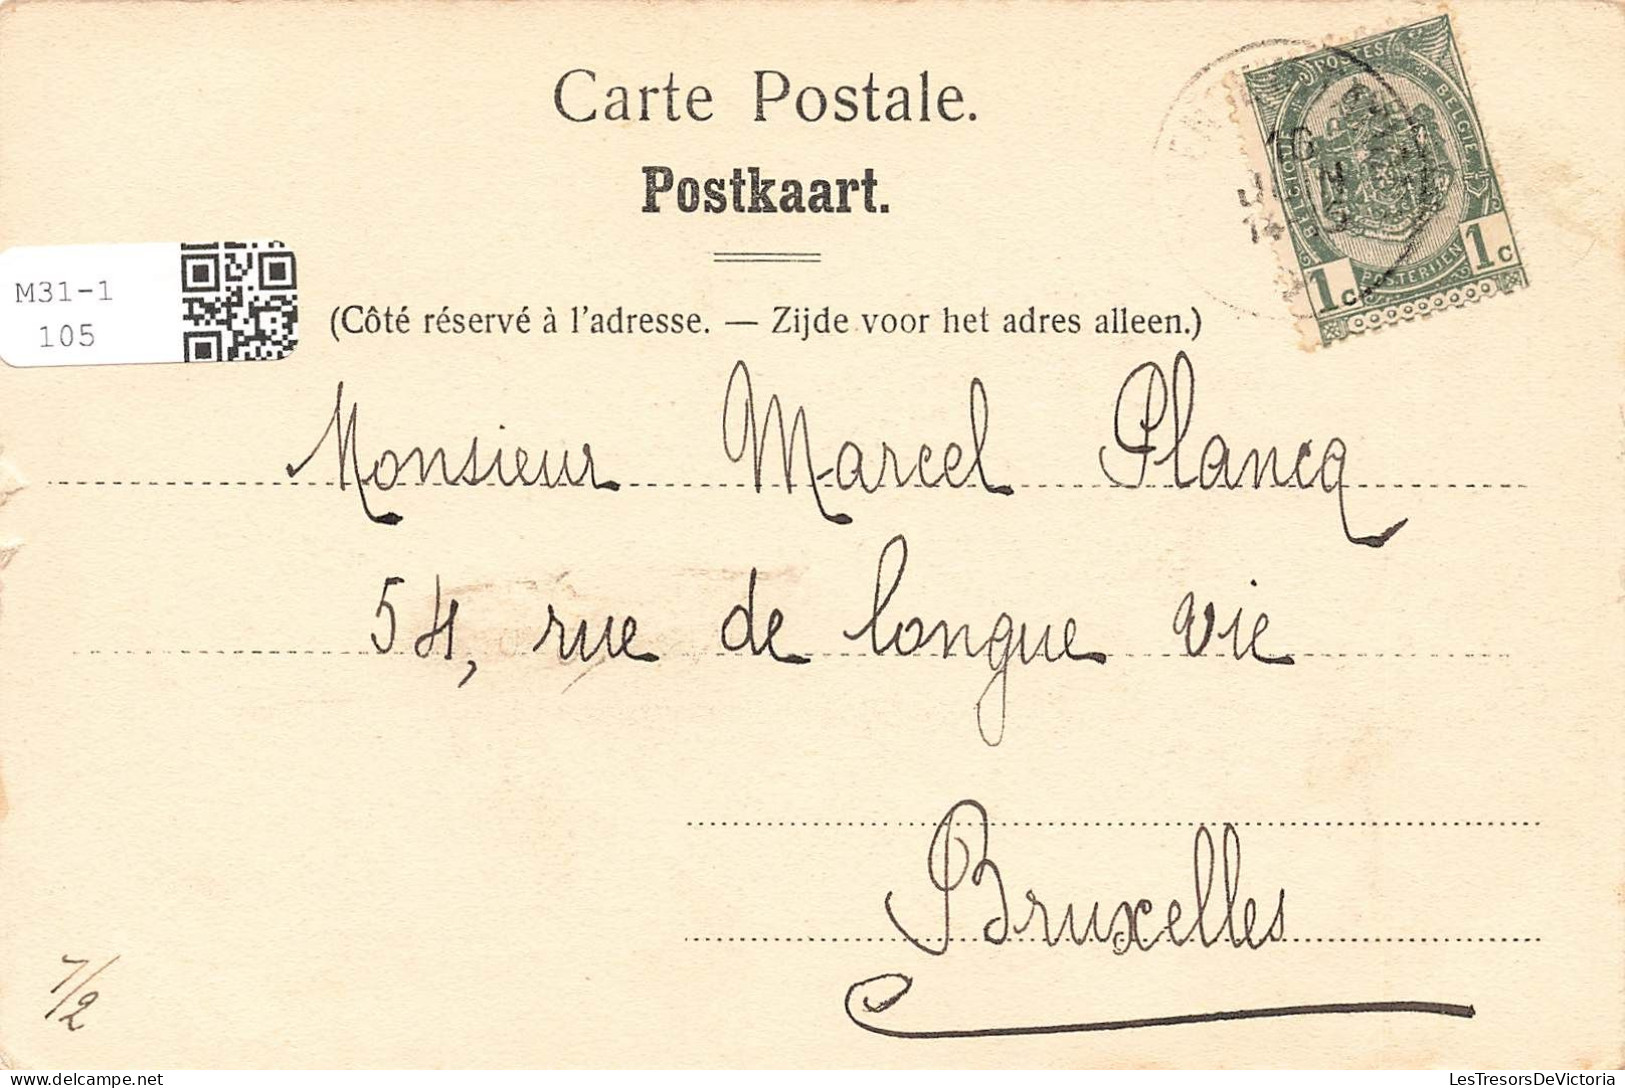 Carte Postale.
Postkaart.
POSTES
BELGIQUE
BELGIË
POSTERIJEN
1c
1c
16
M31-1
105
(Côté réservé à l'adresse. — Zijde voor het adres alleen.)
Monsieur Marcel Plancq
54, rue de longue vie
Bruxelles
7/2
LesTresorsDeVictoria